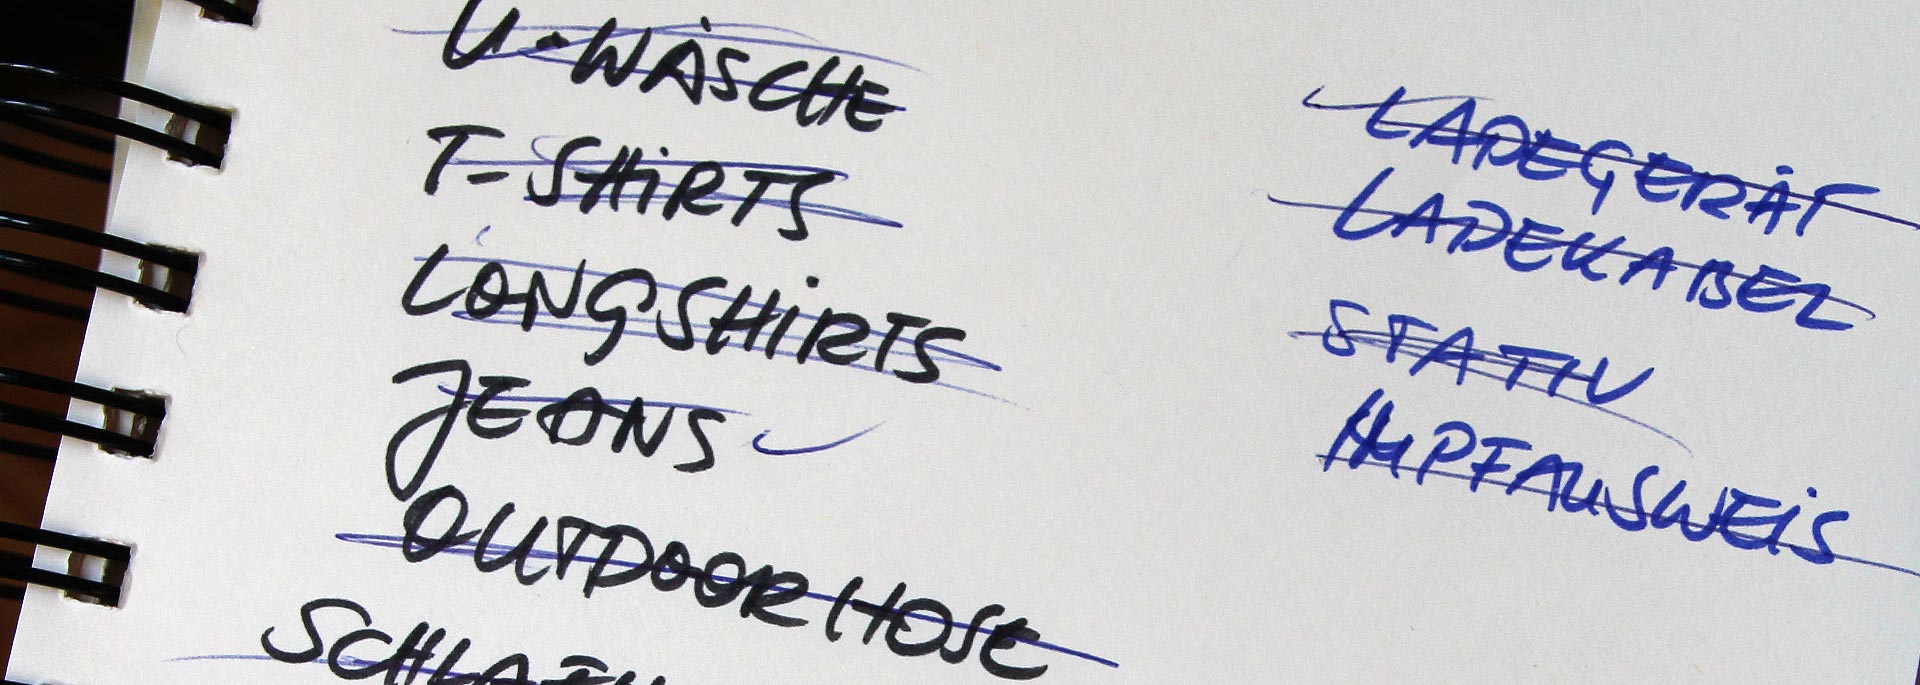 U-WÄSCHE
T-SHIRTS
LONGSHIRTS
JEANS
OUTDOORHOSE
LADEGERÄT
LADEKABEL
STATIV
IMPFAUSWEIS